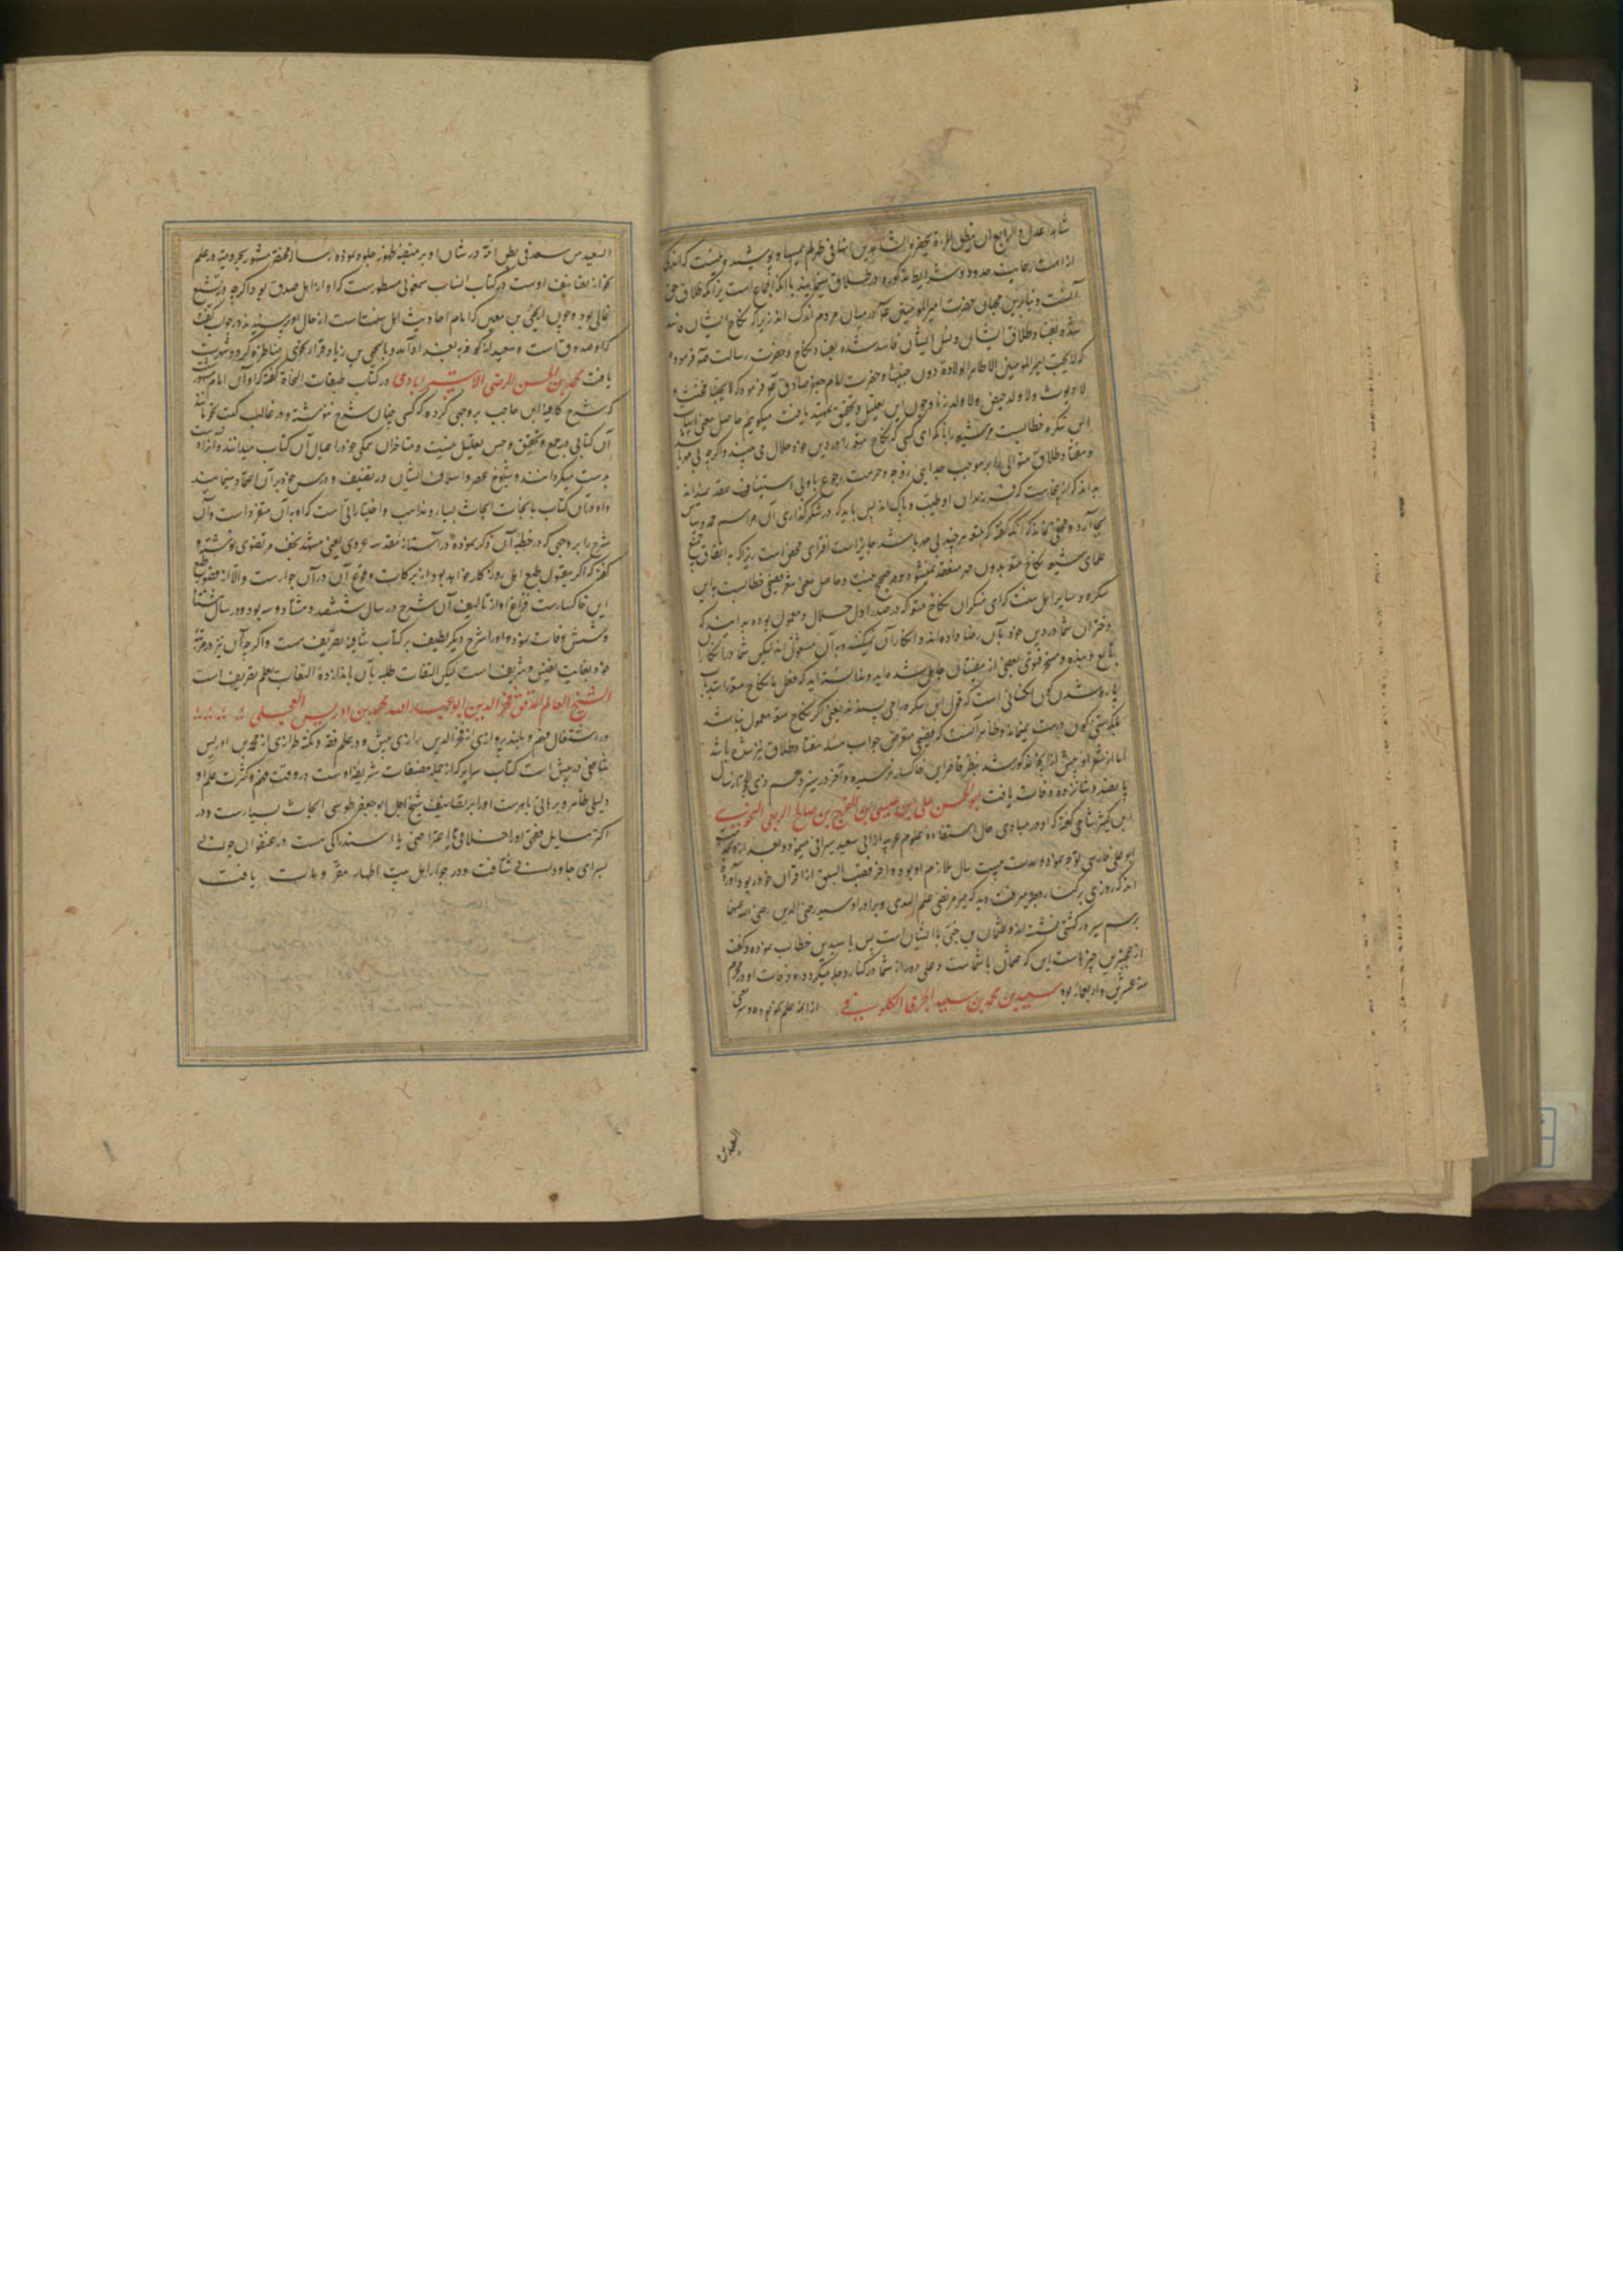 شاهدا عدل و الرابع ان ینطق المراة بحضرة الشاهدین انها فی طهر لم یمسها و پوشیده نیست که اندکی
از امت رعایت حدود و شرایط مذکوره در طلاق مینمایند با آنکه اجماع است بر آنکه طلاق حق
آنست و بنابرین محبان حضرت امیر المومنین در میان مردم اندک اند زیرا که نکاح ایشان فاسد
شده بفساد طلاق ایشان و نسل ایشان فاسد شده بفساد نکاح و حضرت رسالت فرموده
که لا یحب امیر المومنین الا طاهر الولادة دون خبیثها و حضرت امام جعفر صادق فرمود که لا یحبنا مخنث و
لا دیوث و لا ولد حیض و لا ولد زنا و چون این تعلیل و تحقیق تمهید یافت میگوییم حاصل معنی ابیات
ابن سکره خطابست مر شیعه را بآنکه ای کسی که نکاح متعه را در دین خود حلال می بیند و اگر چه بی مهر باشد
و هفتاد طلاق متوالی را بر موجب جدایی زوجه و حرمت رجوع باو بی استیناف عقد نمیداند
بداند که از اینجاست که فرزندان او طیب و پاک اند پس باید که در شکرگذاری آن مراسم حمد و سپاس
بجا آرد و مخفی نماند که آنکه گفته که متعه هر چند بی مهر باشد جایز است افترای محض است زیرا که به اتفاق جمیع
علمای شیعه نکاح متعه بدون مهر منعقد نمیشود و صحیح نیست و حاصل معنی شعر فیضی خطابست با ابن
سکره و سایر اهل سنت که ای منکران نکاح متعه که در صدر اول حلال و معمول بوده بدانند که
دختران شما در دین خود بآن رضا داده اند و انکار آن نمیکنند و به آن مشغول اند لیکن شما در انکار آن
تابع
پاره شدن کون کسانی است که قول ابن سکره را می پسندند یعنی اگر نکاح متعه معمول نباشد
هفتاد طلاق نیز
اما از شعر او پیش از آنچه مذکور شد بنظر قاصر این خاکسار نرسیده و آخر در پنزدهم ذی الحجه سال
پانصد و شانزده وفات یافت ابو الحسن علی بن عیسی بن الفرج بن صالح الربعی النحوی
ابن کثیر شامی گفته که او در مبادی حال استفاده علوم عربیه از ابی سعید سیرافی مینمود و بعد از آن بخدمت
ابو علی فارسی توجه نمود و مدت بیست سال ملازم او بوده و آخر قصب السبق از اقران خود ربود و آورده
اند که روزی بر کنار دجله میرفت دید که میر مرتضی علم الهدی و برادر او سید رضی الدین رضی الله عنهما
برسم سیر در کشتی نشسته اند و عثمان بن جنی با ایشان است پس با سیدین خطاب نموده و گفت
از عجیبترین چیزهاست این که عثمان با شماست و علی دور از شما در کنار دجله میگردد و وفات او در محرم
سنه عشرین و اربعمائه بود سعید بن محمد بن سعید الجرمی الکوفی از ائمه علم نحو بوده و سر معنی
السعید
السعید من سعد فی بطن امه در شان او بر منصه ظهور جلوه نموده رساله مختصر مشهور بجرمیه در علم
نحو از تصانیف اوست در کتاب انساب سمعانی مسطورست که او از اهل صدق بود اگر چه در تشیع
غالی بود و چون از یحیی بن معین که امام احادیث اهل سنت است از حال او پرسیدند در جواب گفت
که او صدوق است و سعید مذکور به بغداد آمد و با یحیی بن زیاد فراء نحوی مناظره کرد و شهرت
یافت محمد بن الحسن الرضی الاسترابادی در کتاب طبقات النحاة گفته که او آن امام مشهور
که شرح کافیه ابن حاجب بر وجهی کرده که کسی چنان شرح ننوشته و در غالب کتب نحو مانند
آن کتابی در جمع و تحقیق و حسن تعلیل نیست و متاخران همگی خود را عیال آن کتاب میدانند و آنرا دست
بدست میگردانند و شیوخ عصر و اسلاف ایشان در تصنیف و درس خود بر آن اعتماد مینمایند
و او در آن کتاب با نحات ابحاث بسیار و مذاهب و اختیاراتی است که او به آن متفرد است و آن
شرح را بر وجهی که در خطبه آن ذکر نموده در آستانه مقدسه غروی یعنی مشهد نجف مرتضوی نوشته و
گفته که اگر مقبول طبع اهل روزگار خواهد بود از برکات وقوع آن در آن جوارست و الا از قصور طبع
این خاکسارست فراغ او از تالیف آن شرح در سال ششصد و هشتاد و سه بود و در سال هشتاد
و شش وفات نموده و او را شرح دیگر لطیف بر کتاب شافیه تصریف هست و اگر چه آن نیز در مرتبه
خود بغایت نفیس و شریف است لیکن التفات طلبه بآن باندازه التفات بعلم تصریف است
الشیخ العالم المدقق فخر الدین ابو عبد الله محمد بن ادریس العجلی
در اشتغال فهم و بلند پروازی از فخر الدین رازی بیش و در علم فقه و نکته طرازی از محمد بن ادریس
شافعی در پیش است کتاب سرایر که از جمله مصنفات شریفه اوست در وقت فهم و کثرت علم او
دلیلی ظاهر و برهانی باهرست او را بر تصانیف شیخ اجل ابو جعفر طوسی ابحاث بسیارست و در
اکثر مسایل فقهی او را خلافی یا اعتراضی یا استدراکی هست در عنفوان جوانی
بسرای جاودانی شتافت و در جوار اهل بیت اطهار مقر و ملاذ یافت